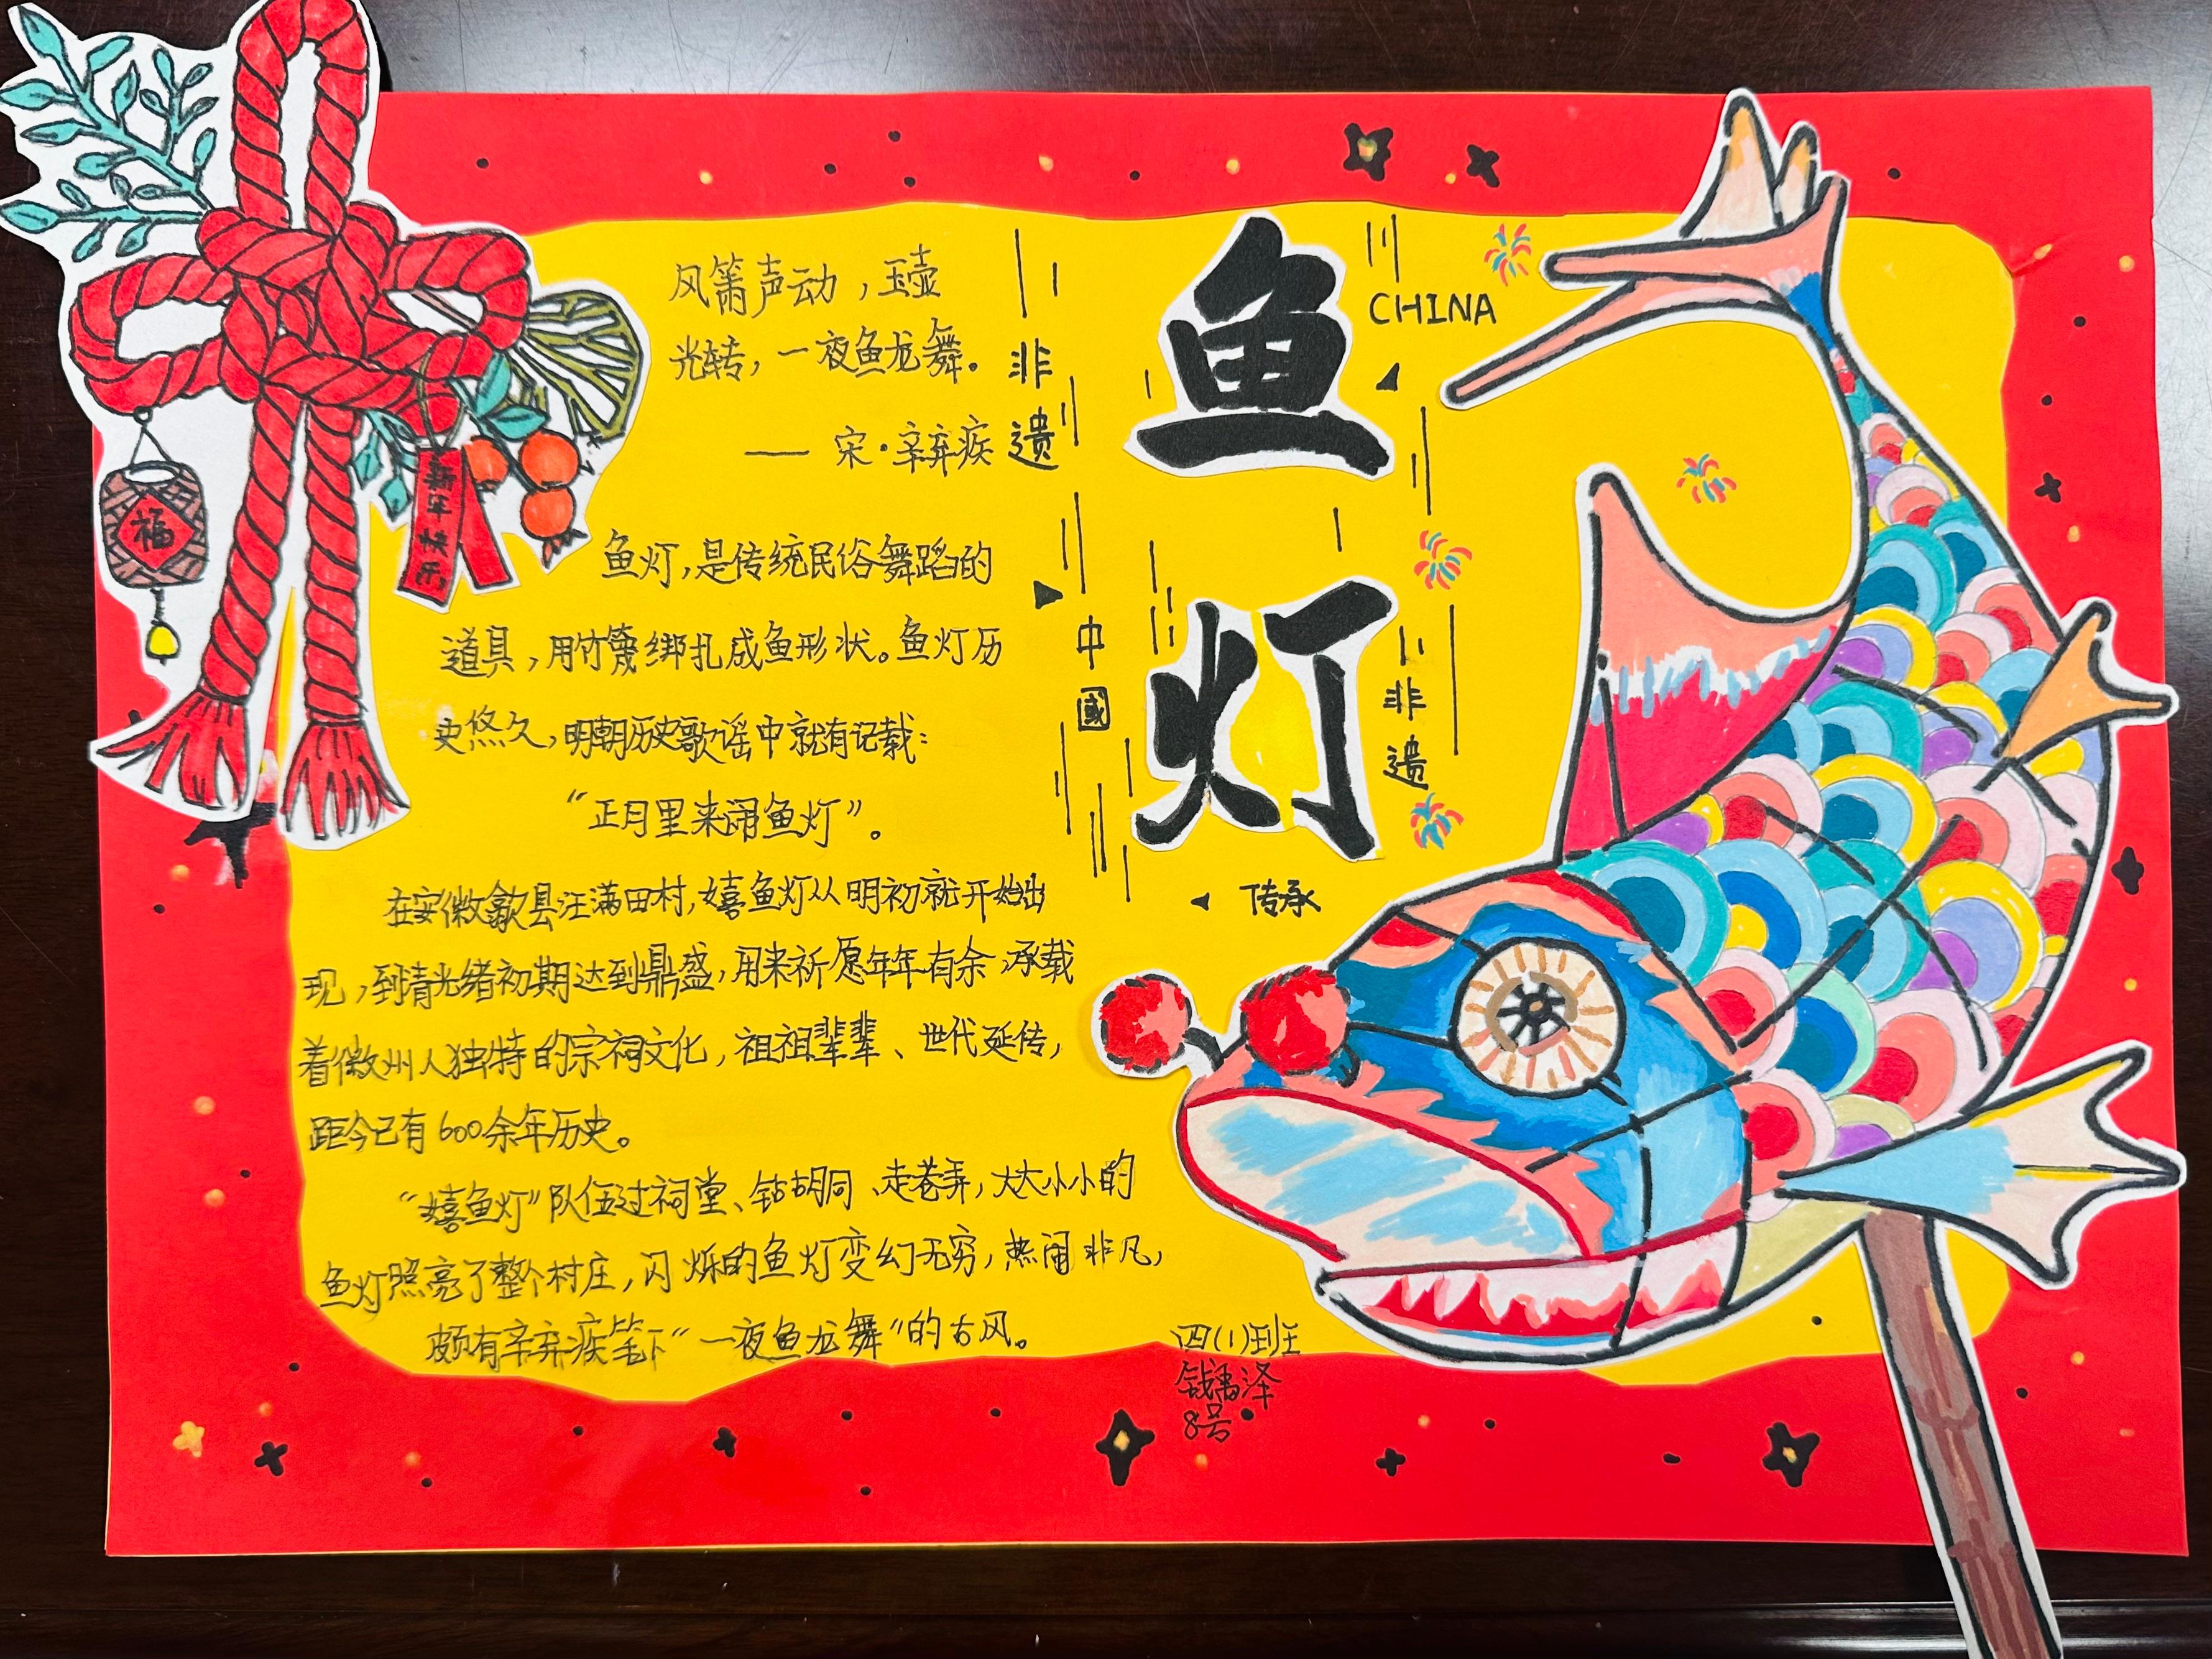 风箫声动，玉壶
光转，一夜鱼龙舞。
—— 宋·辛弃疾
鱼灯，是传统民俗舞蹈的
道具，用竹篾绑扎成鱼形状。鱼灯历
史悠久，明朝历史歌谣中就有记载：
“正月里来闹鱼灯”。
在安徽歙县汪满田村，嬉鱼灯从明初就开始出
现，到清光绪初期达到鼎盛，用来祈愿年年有余，承载
着徽州人独特的宗祠文化，祖祖辈辈、世代延传，
距今已有600余年历史。
“嬉鱼灯”队伍过祠堂、钻胡同、走巷弄，大大小小的
鱼灯照亮了整个村庄，闪烁的鱼灯变幻无穷，热闹非凡，
颇有辛弃疾笔下“一夜鱼龙舞”的古风。
非遗
中國
鱼灯
CHINA
非遗
传承
福
新年快乐
四(1)班
钱禹泽
8号